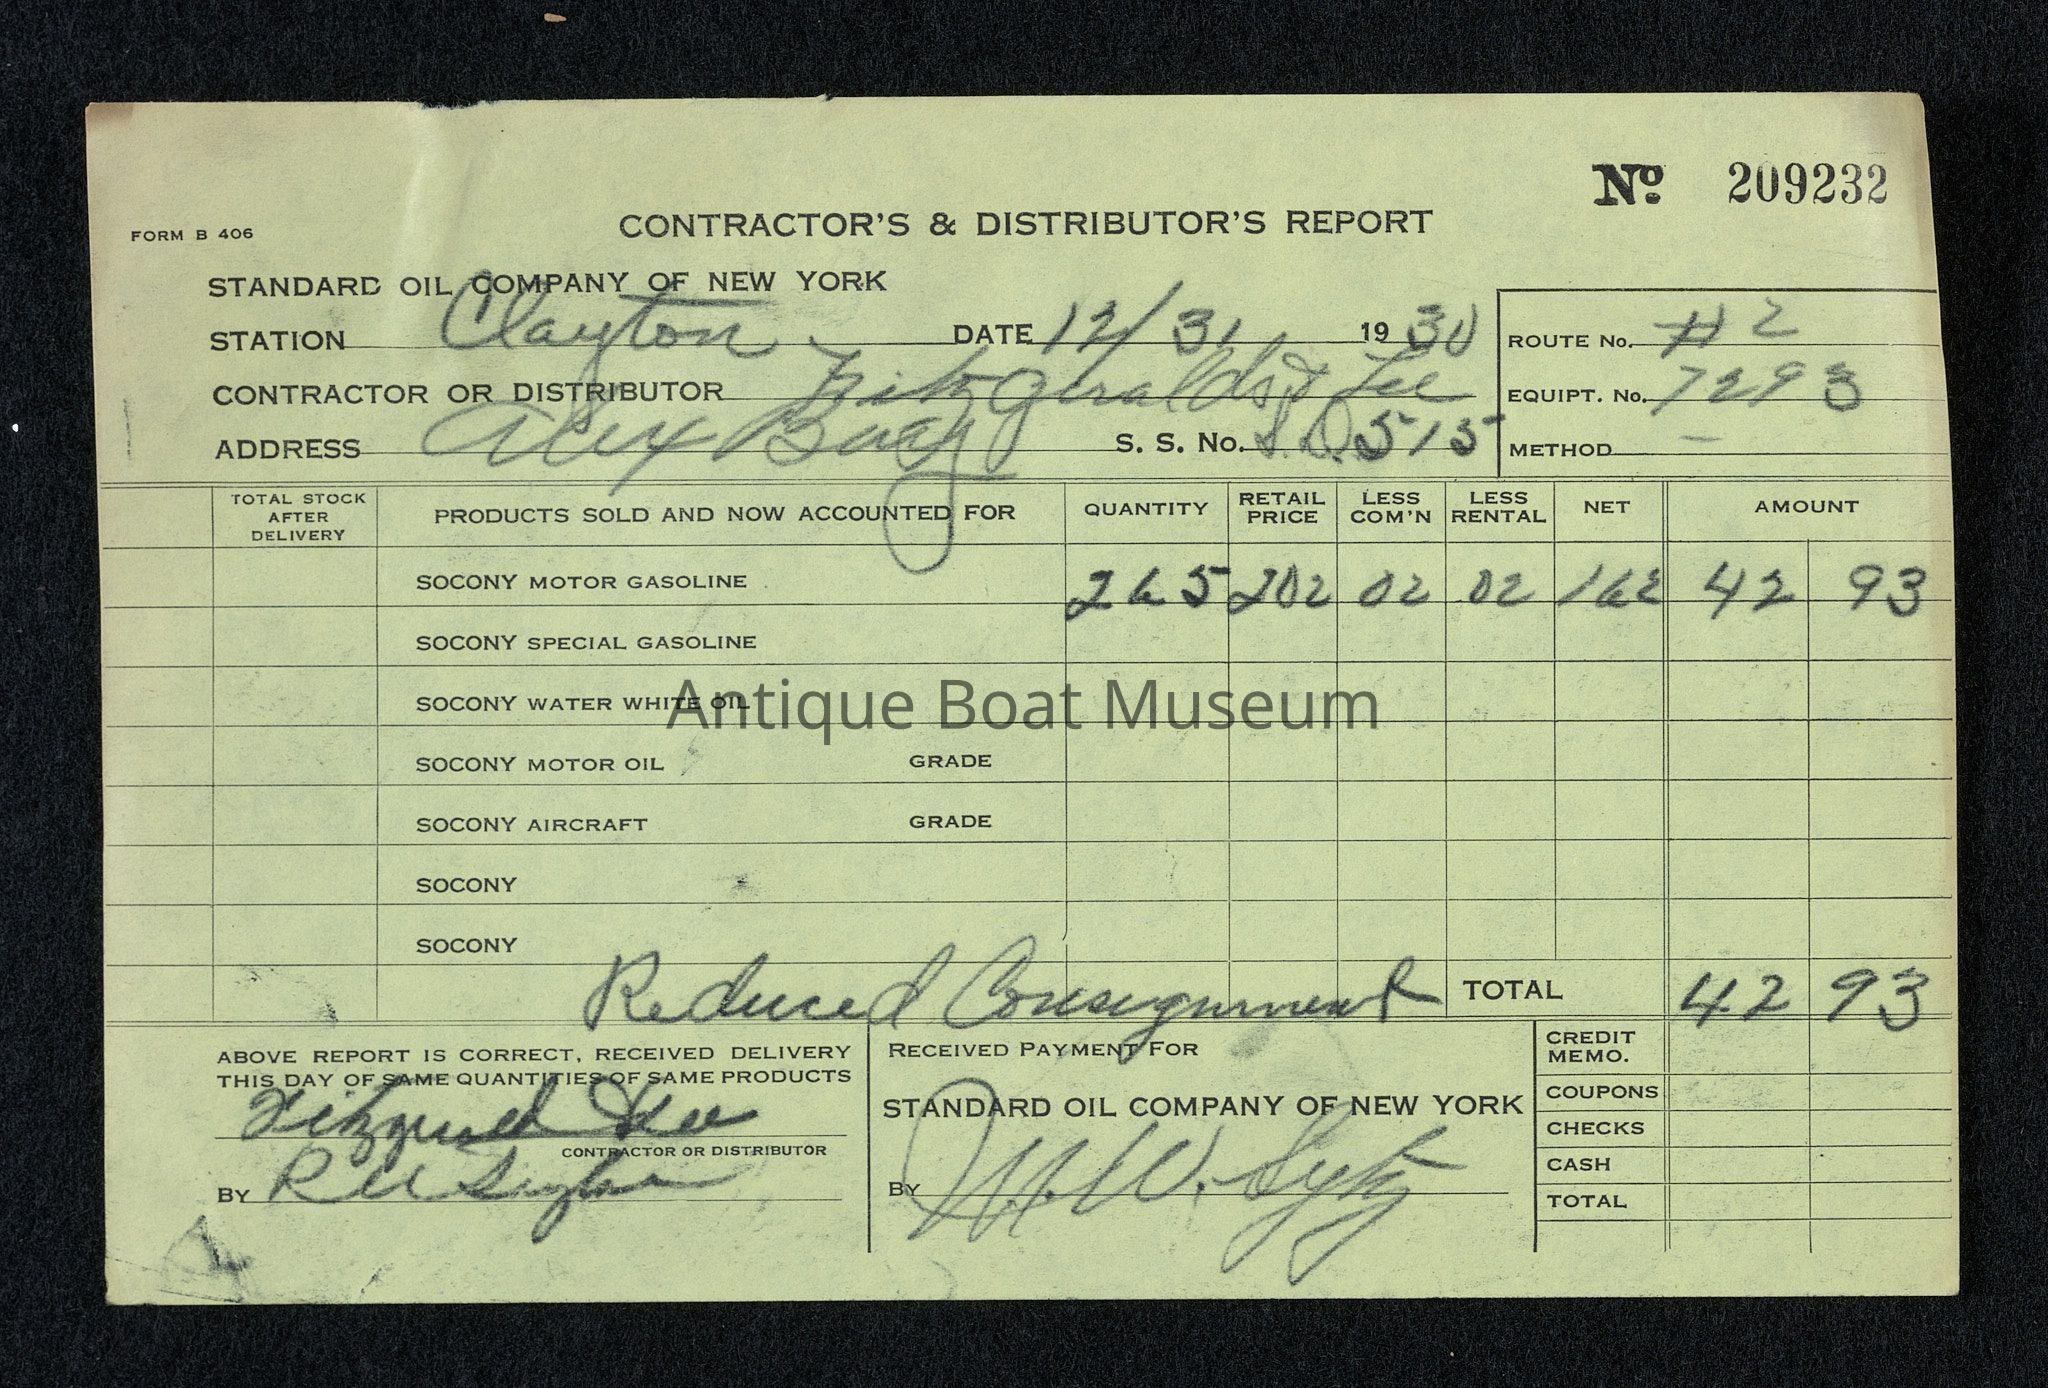 No. 209232
FORM B 406
CONTRACTOR'S & DISTRIBUTOR'S REPORT
STANDARD OIL COMPANY OF NEW YORK
STATION Clayton DATE 12/31 1930
ROUTE No. #2
CONTRACTOR OR DISTRIBUTOR Fitzgerald & Lee
EQUIPT. No. 7293
ADDRESS Alex Bay S. S. No. S.D. 515
METHOD —
TOTAL STOCK AFTER DELIVERY PRODUCTS SOLD AND NOW ACCOUNTED FOR QUANTITY RETAIL PRICE LESS COM'N LESS RENTAL NET AMOUNT
SOCONY MOTOR GASOLINE 265 202 02 02 162 42 93
SOCONY SPECIAL GASOLINE
SOCONY WATER WHITE OIL
Antique Boat Museum
SOCONY MOTOR OIL GRADE
SOCONY AIRCRAFT GRADE
SOCONY
SOCONY
Reduced Consignment TOTAL 42 93
ABOVE REPORT IS CORRECT, RECEIVED DELIVERY
THIS DAY OF SAME QUANTITIES OF SAME PRODUCTS
Fitzgerald & Lee
CONTRACTOR OR DISTRIBUTOR
BY R
RECEIVED PAYMENT FOR
STANDARD OIL COMPANY OF NEW YORK
BY W.
CREDIT MEMO.
COUPONS
CHECKS
CASH
TOTAL